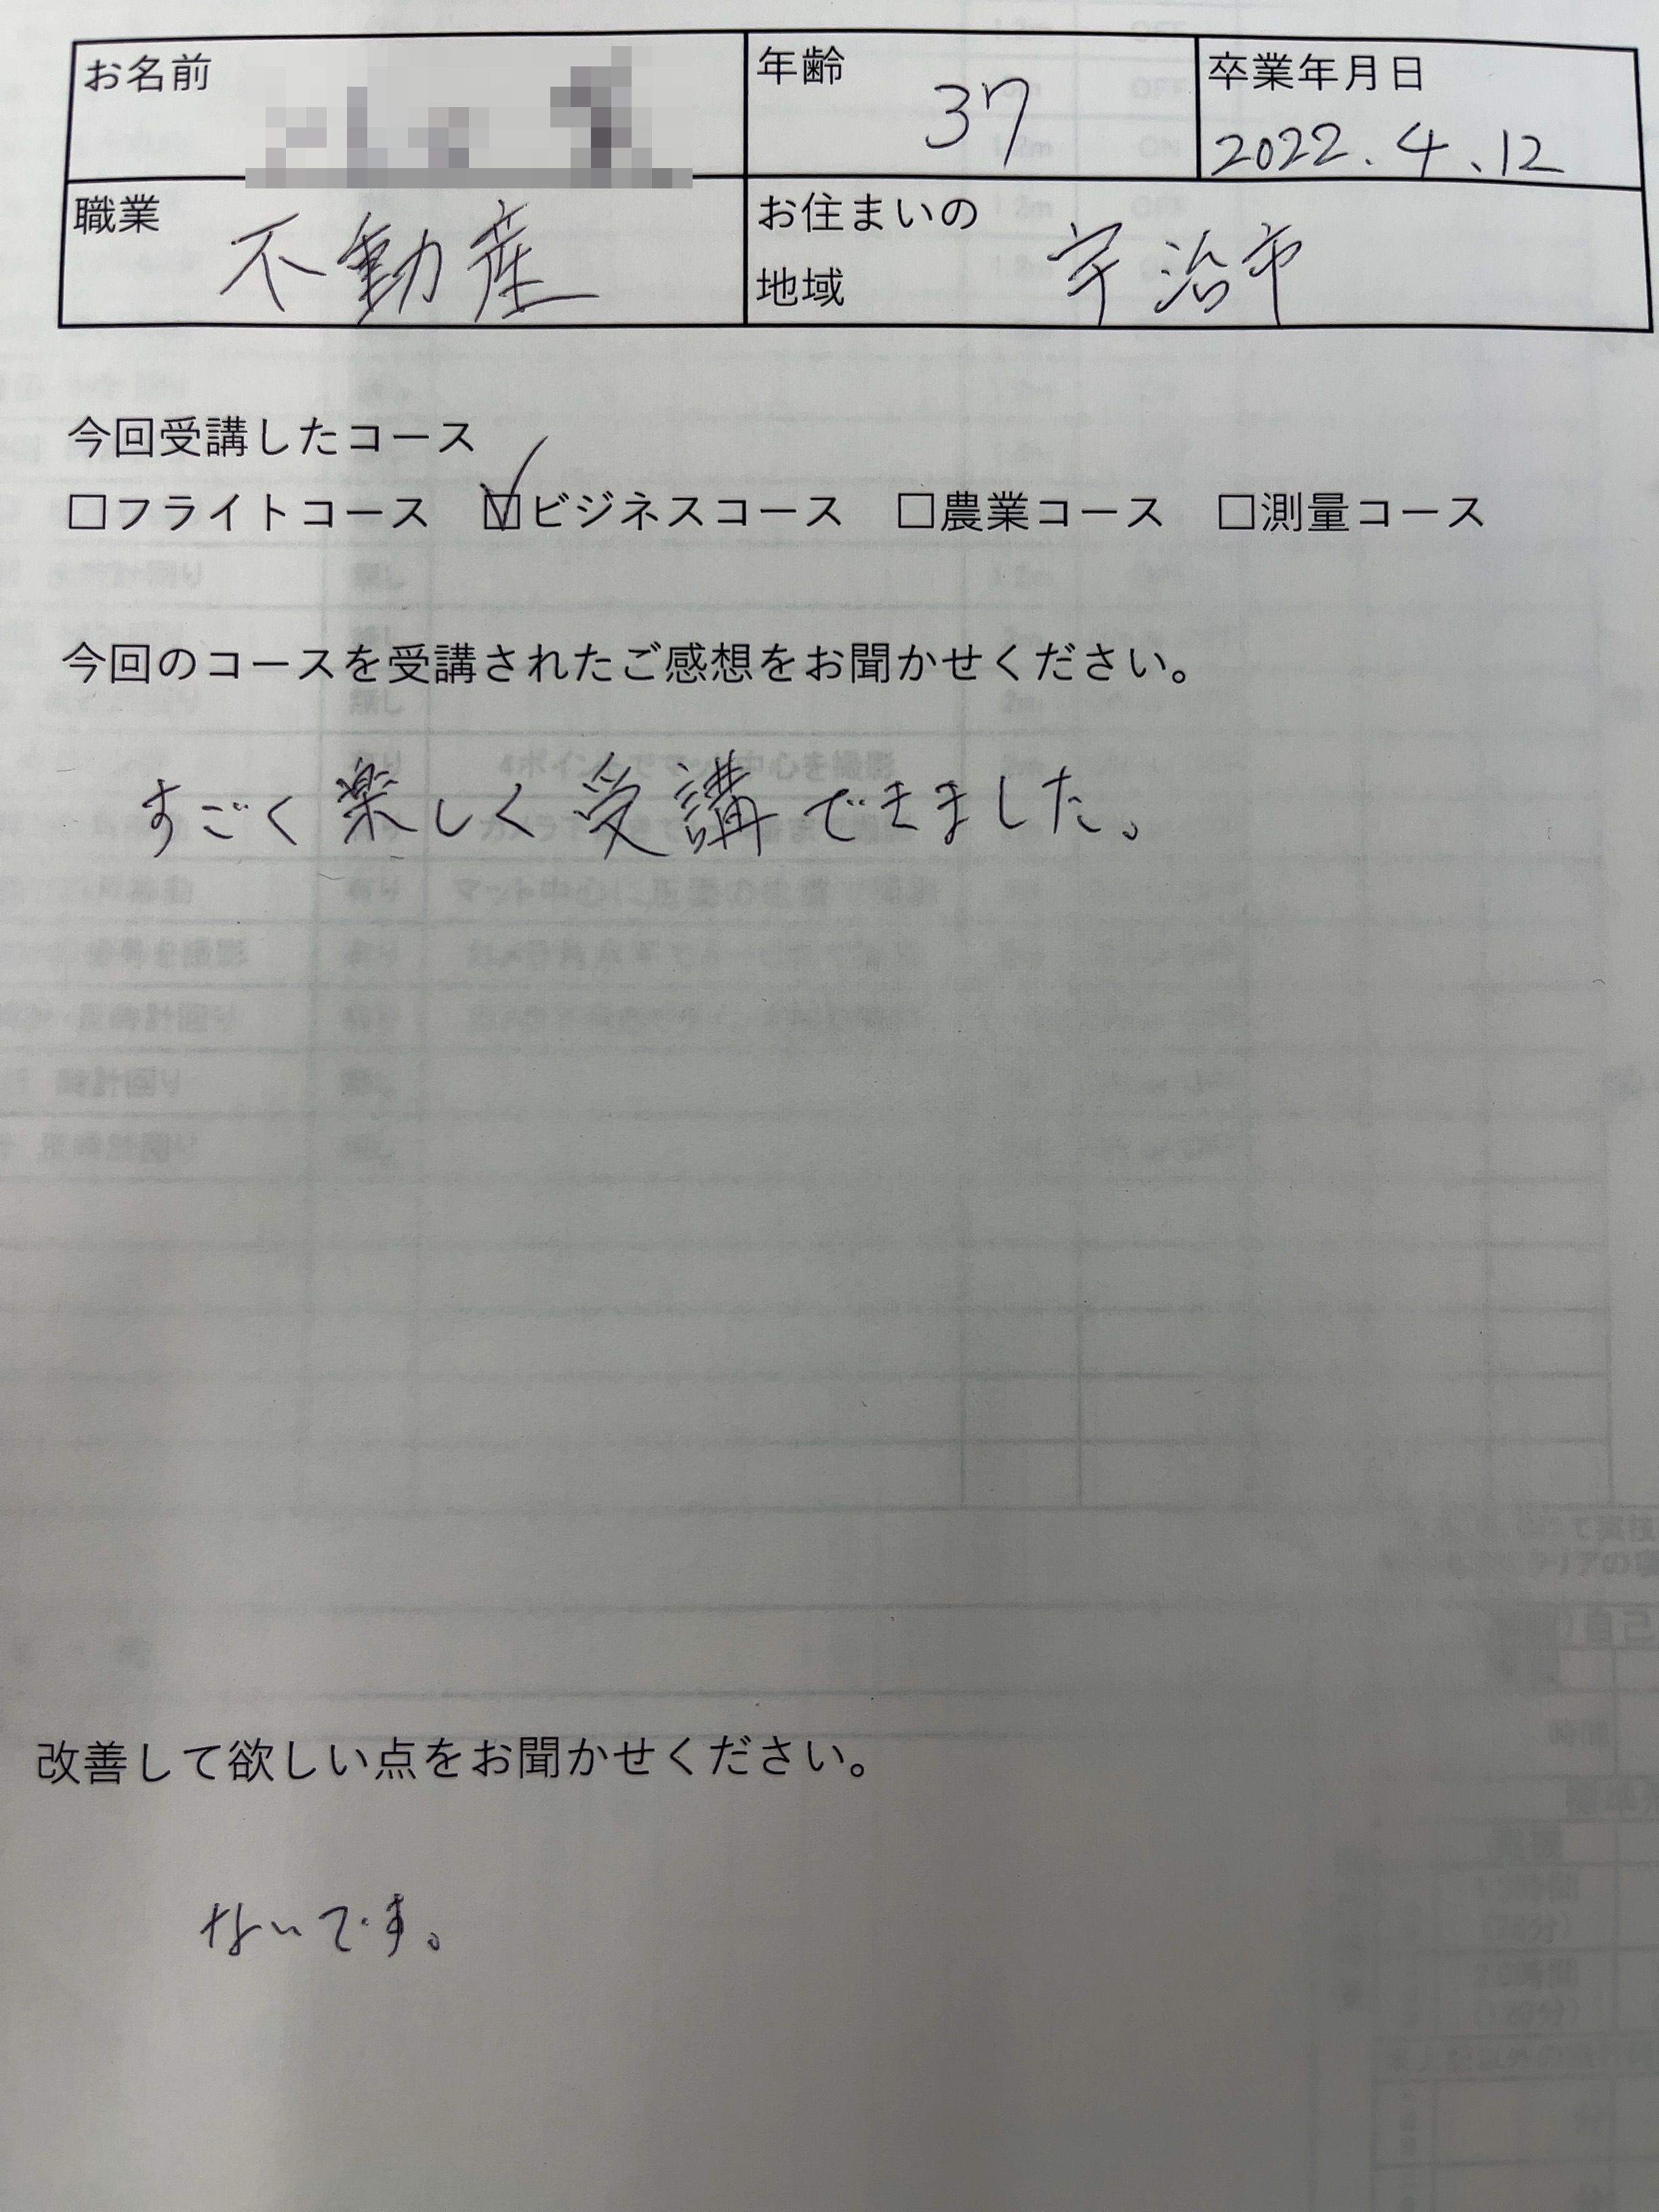 お名前
年齢 37
卒業年月日 2022.4.12
職業 不動産
お住まいの地域 宇治市
今回受講したコース
□フライトコース ☑ビジネスコース □農業コース □測量コース
今回のコースを受講されたご感想をお聞かせください。
すごく楽しく受講できました。
改善して欲しい点をお聞かせください。
ないです。